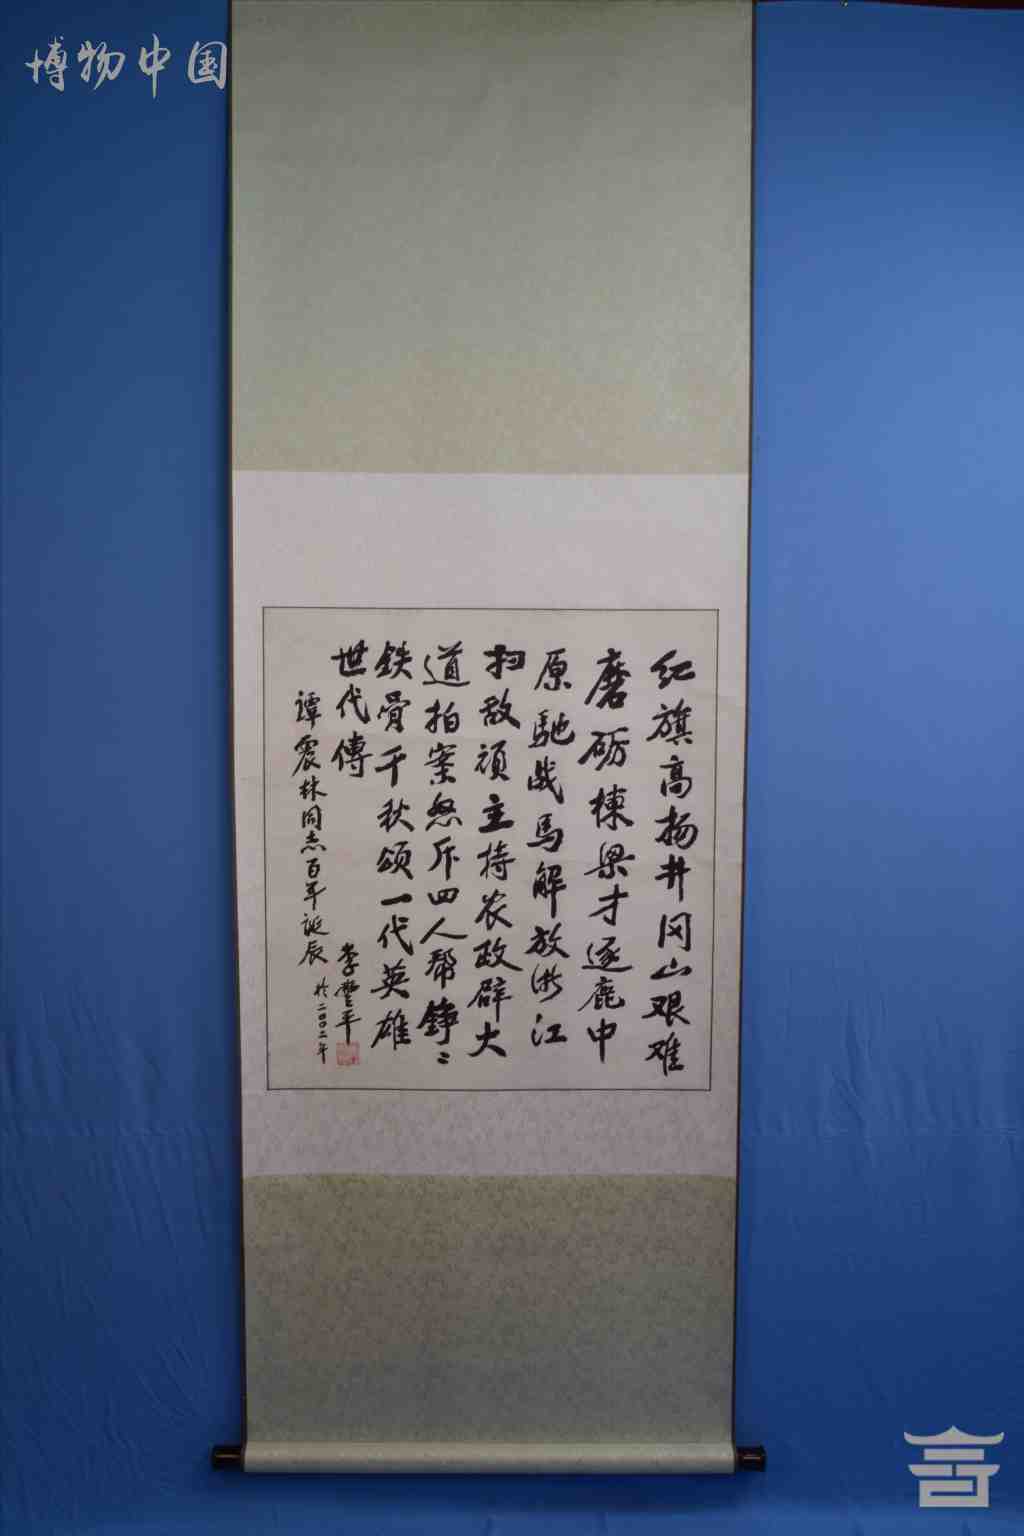 博物中国
红旗高扬井冈山艰难
磨砺栋梁才逐鹿中
原馳战马解放浙江
扫敌顽主持农政辟大
道拍案怒斥四人帮錚〻
鉄骨千秋颂一代英雄
世代傳
譚震林同志百年诞辰
李豐平
於二〇〇二年